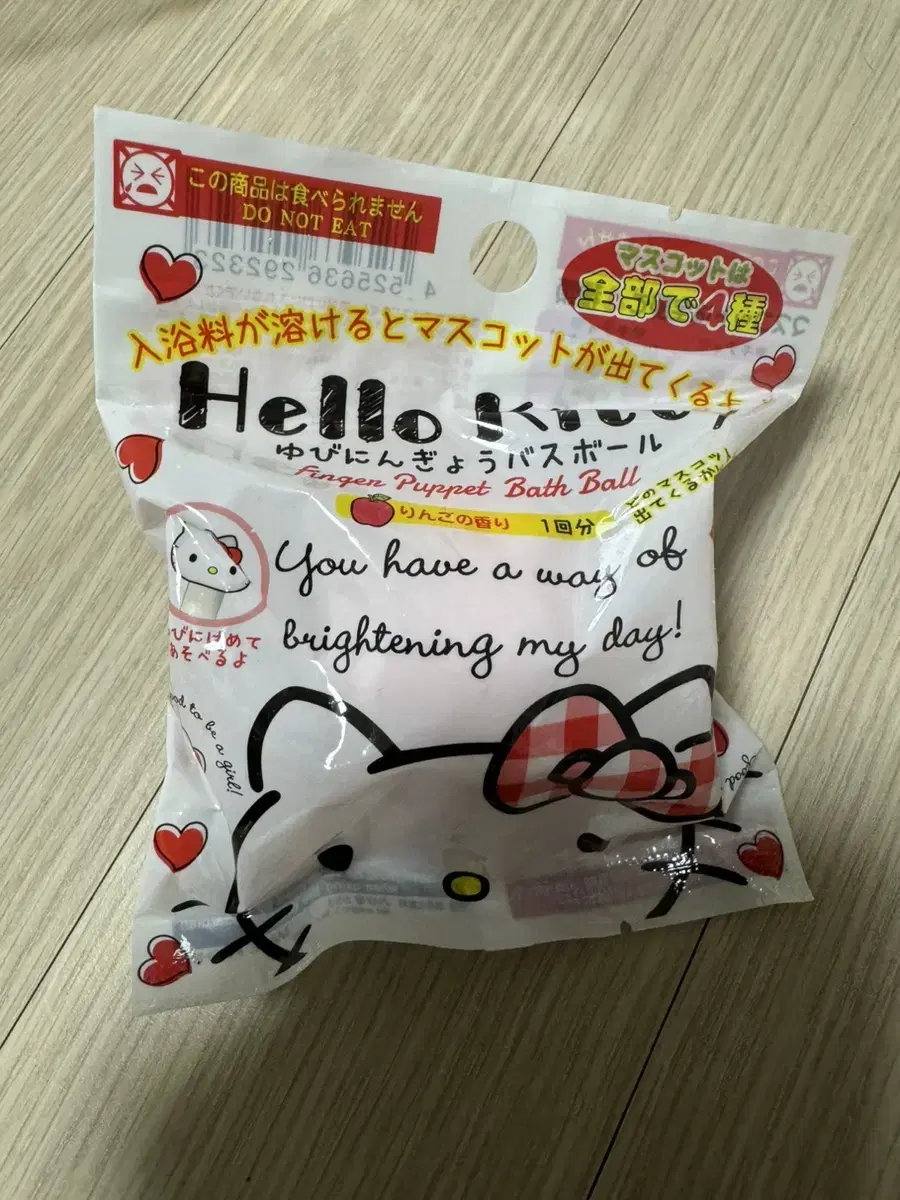 この商品は食べられません
DO NOT EAT
4 525636 292322
マスコットは
全部で4種
入浴料が溶けるとマスコットが出てくるよ
Hello Kitty
ゆびにんぎょうバスボール
Finger Puppet Bath Ball
りんごの香り 1回分
出てくるか
You have a way of
brightening my day!
びにはめて
あそべるよ
good to be a girl!
good